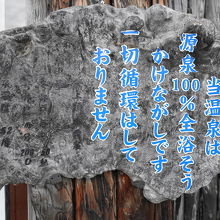 当温泉は
源泉100%全浴そう
かけながしです
一切循環はして
おりません